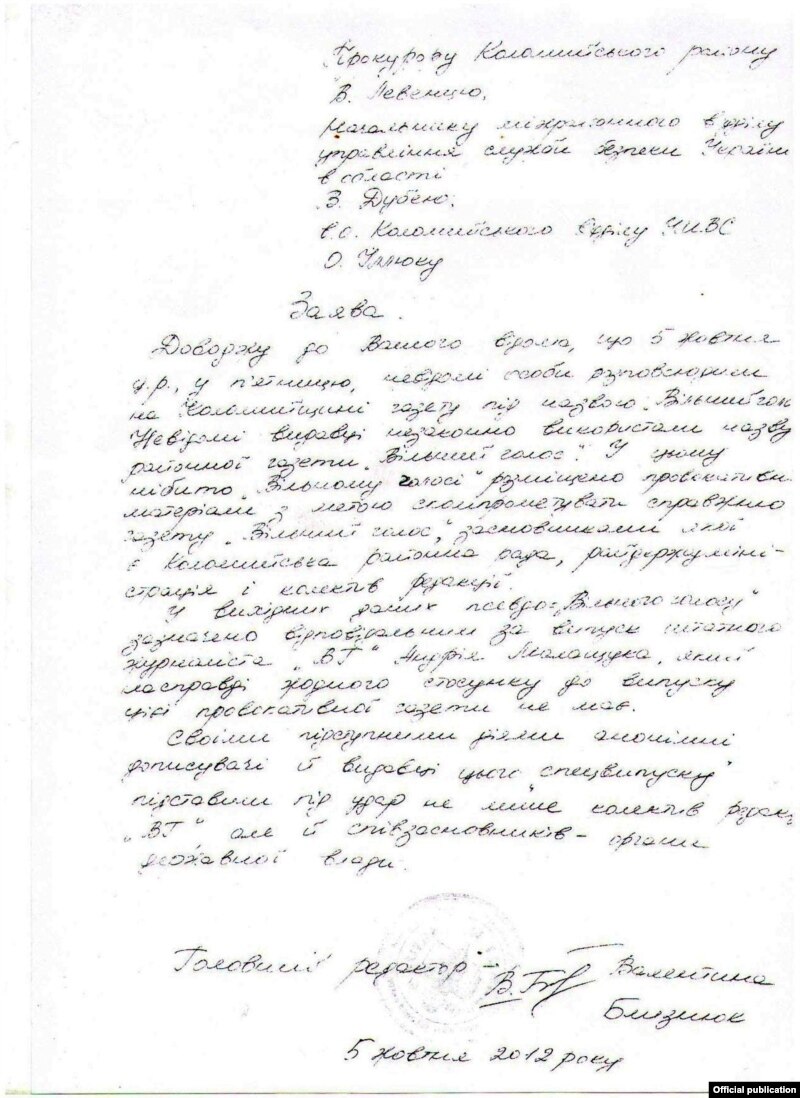 Прокурору Коломийського району
В. Левенцю,
Начальнику міжрайонного відділу
управління служби безпеки України
в області
В. Дубею,
в.о. Коломийського відділу УМВС
О. Ілюку
Заява.
Доводжу до Вашого відома, що 5 жовтня
ц.р., у п'ятницю, невідомі особи розповсюдили
на Коломийщині газету під назвою „Вільний гол
Невідомі видавці незаконно використали назву
районної газети „Вільний голос". У цьому
нібито „Вільному голосі" розміщено провокативні
матеріали з метою скомпрометувати справжню
газету „Вільний голос", засновниками якої
є Коломийська районна рада, райдержадміні-
страція і колектив редакції.
У вихідних даних псевдо „Вільного голосу"
зазначено відповідальним за випуск штатного
журналіста „ВГ" Андрія Малащука, який
насправді жодного стосунку до випуску
цієї провокативної газети не має.
Своїми підступними діями анонімні
дописувачі й видавці цього спецвипуску"
підставили під удар не лише колектив редакц
„ВГ" але й співзасновників – органи
державної влади.
Головний редактор – В.Б Валентина
Близнюк
5 жовтня 2012 року
Official publication